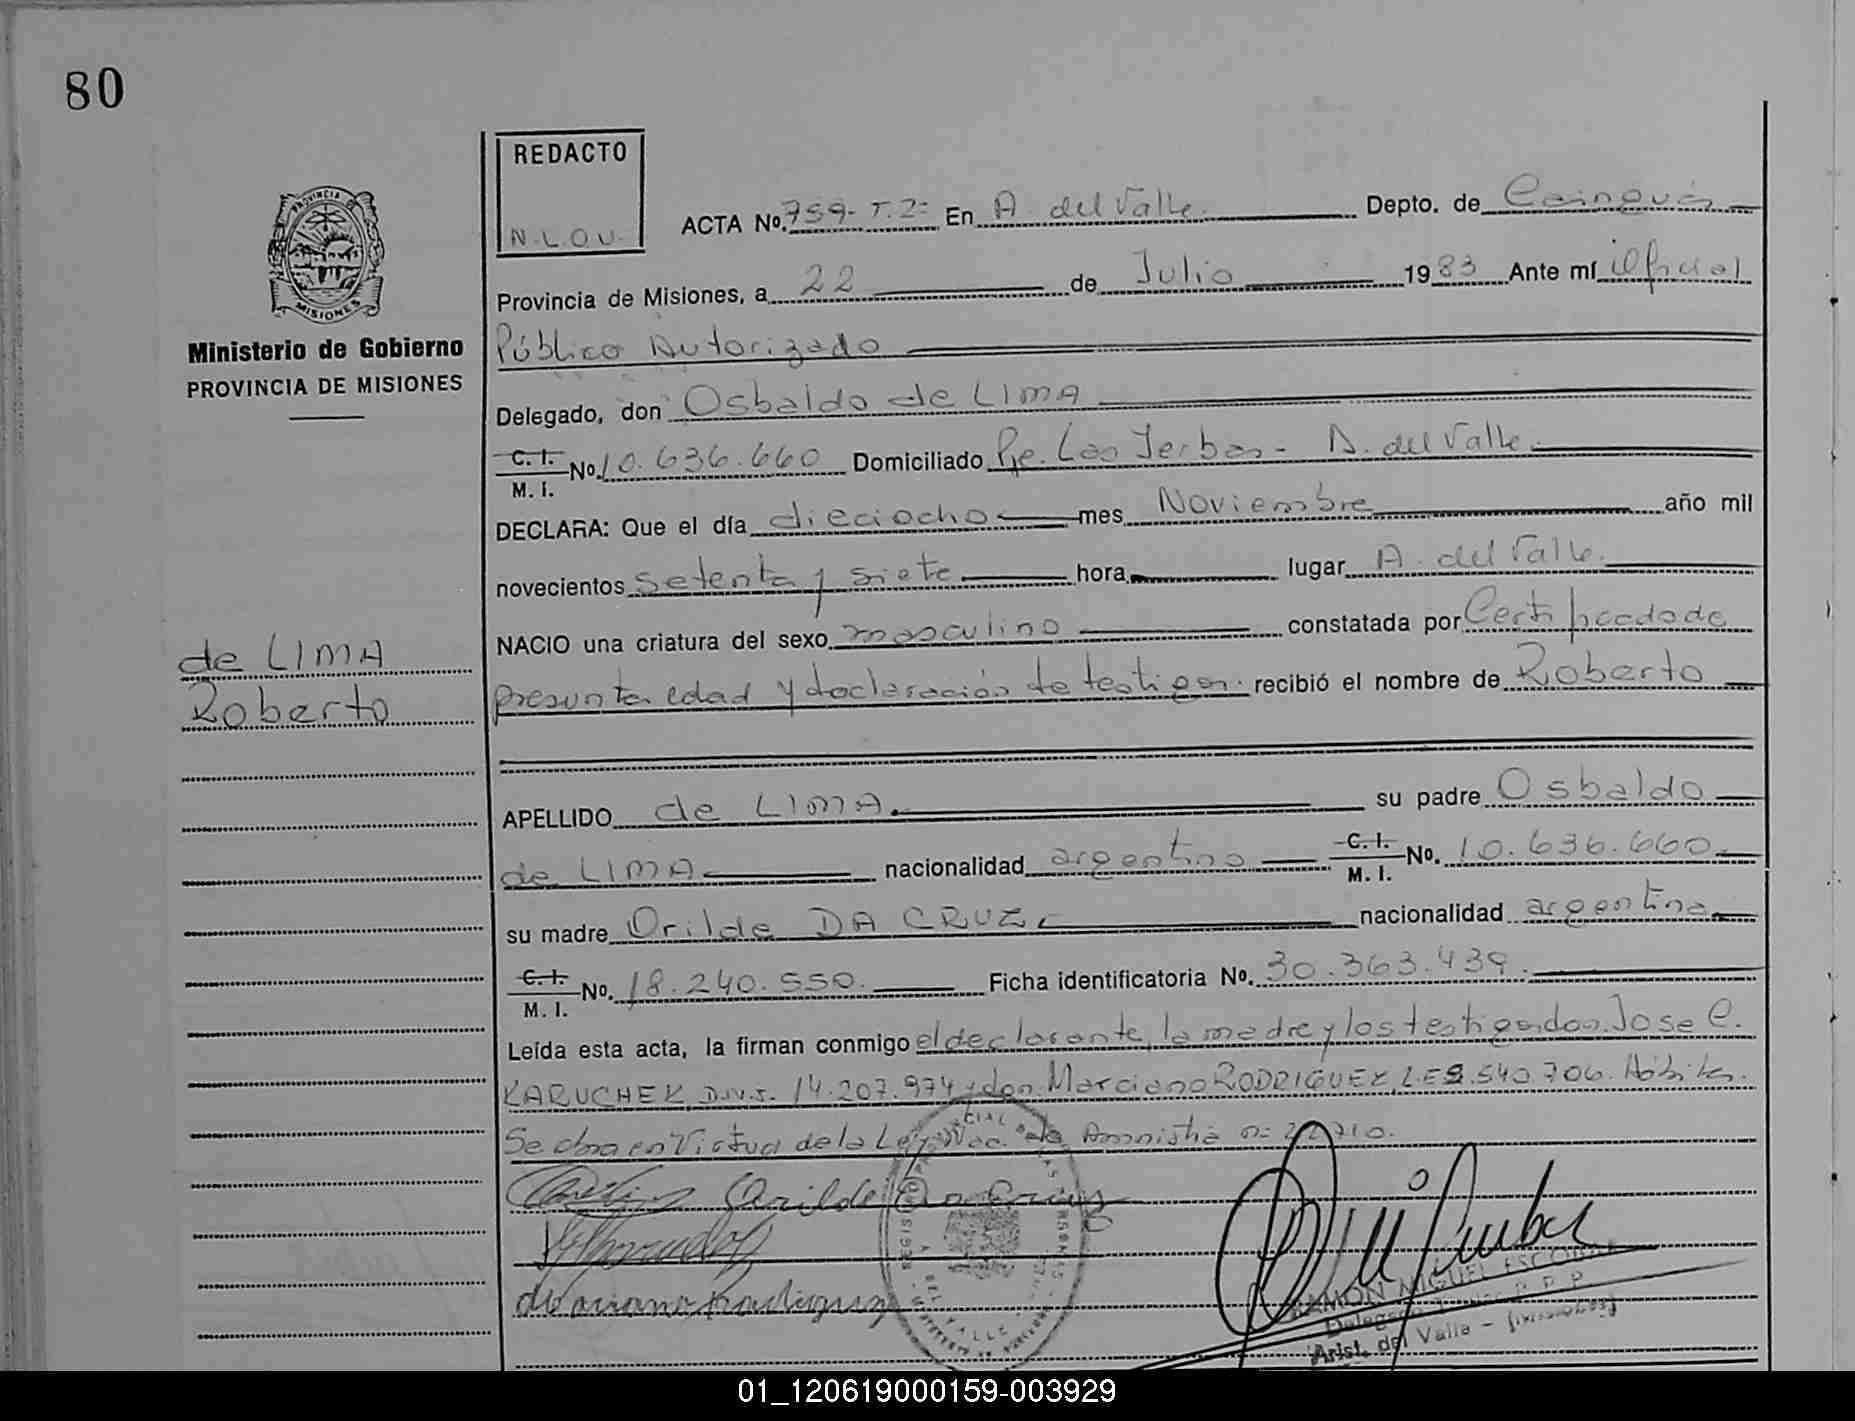 80
REDACTO
N.L.O.U.
PROVINCIA DE
MISIONES
Ministerio de Gobierno
PROVINCIA DE MISIONES
de LIMA
Roberto
ACTA No. 759- T.2= En A. del Valle. Depto. de Cainguás
Provincia de Misiones, a 22 de Julio 1983 Ante mí el Oficial
Público Autorizado
Delegado, don Osbaldo de LIMA
C. I. M. I. No. 10.636.660 Domiciliado Pje. Las Yerbas - A. del Valle.
DECLARA: Que el día dieciocho mes Noviembre año mil
novecientos setenta y siete hora lugar A. del Valle.
NACIO una criatura del sexo masculino constatada por Certificado de
presunta edad y declaración de testigos. recibió el nombre de Roberto
APELLIDO de LIMA. su padre Osbaldo
de LIMA nacionalidad argentino C. I. M. I. No. 10.636.660
su madre Orilde DA CRUZ nacionalidad argentina
C. I. M. I. No. 18.240.550. Ficha identificatoria No. 30.363.439.
Leída esta acta, la firman conmigo el declarante, la madre y los testigos don Jose C.
KARUCHEK D.N.I. 14.207.974 y don Marciano RODRIGUEZ, L.E. 8.540.706. Hábiles.
Se obra en Virtud de la Ley Nac. de Amnistia nº 22.710.
Orilde Da Cruz
Marciano Rodriguez
RAMON MIGUEL ESCOBAR
Delegado
Arist. del Valle - (Misiones)
01_120619000159-003929